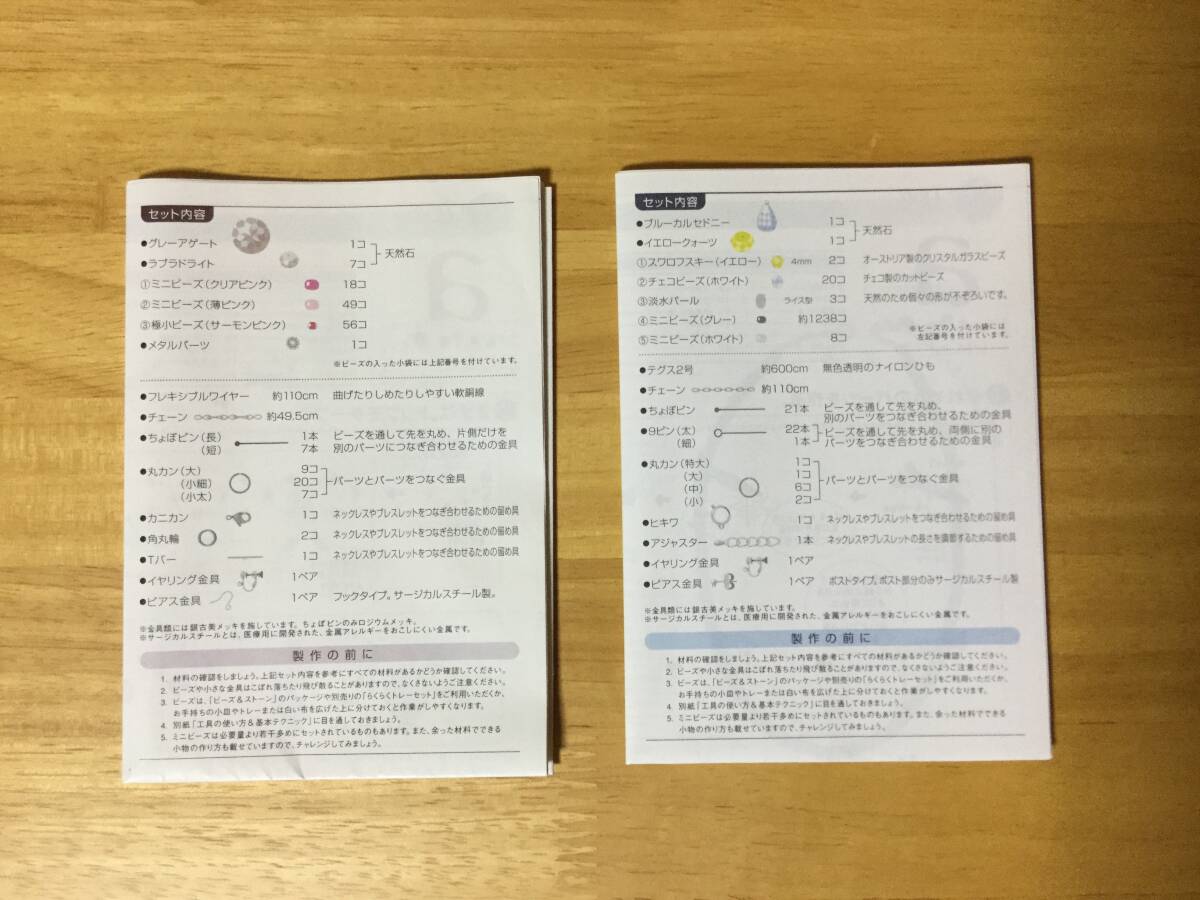 セット内容
●グレーアゲート 1コ
●ラブラドライト 7コ
天然石
①ミニビーズ(クリアピンク) 18コ
②ミニビーズ(薄ピンク) 49コ
③極小ビーズ(サーモンピンク) 56コ
●メタルパーツ 1コ
※ビーズの入った小袋には上記番号を付けています。
●フレキシブルワイヤー 約110cm 曲げたりしめたりしやすい軟銅線
●チェーン 約49.5cm
●ちょぼピン(長) 1本 ビーズを通して先を丸め、片側だけを
(短) 7本 別のパーツにつなぎ合わせるための金具
●丸カン(大) 9コ
(小細) 20コ パーツとパーツをつなぐ金具
(小太) 7コ
●カニカン 1コ ネックレスやブレスレットをつなぎ合わせるための留め具
●角丸輪 2コ ネックレスやブレスレットをつなぎ合わせるための留め具
●Tバー 1コ ネックレスやブレスレットをつなぎ合わせるための留め具
●イヤリング金具 1ペア
●ピアス金具 1ペア フックタイプ。サージカルスチール製。
※金具類には銀古美メッキを施しています。ちょぼピンのみロジウムメッキ。
※サージカルスチールとは、医療用に開発された、金属アレルギーをおこしにくい金属です。
製作の前に
1. 材料の確認をしましょう。上記セット内容を参考にすべての材料があるかどうか確認してください。
2. ビーズや小さな金具はこぼれ落ちたり飛び散ることがありますので、なくさないようご注意ください。
3. ビーズは、「ビーズ&ストーン」のパッケージや別売りの「らくらくトレーセット」をご利用いただくか、
お手持ちの小皿やトレーまたは白い布を広げた上に分けておくと作業がしやすくなります。
4. 別紙「工具の使い方&基本テクニック」に目を通しておきましょう。
5. ミニビーズは必要量より若干多めにセットされているものもあります。また、余った材料でできる
小物の作り方も載せていますので、チャレンジしてみましょう。
セット内容
●ブルーカルセドニー 1コ
●イエロークォーツ 1コ
天然石
①スワロフスキー(イエロー) 4mm 2コ オーストリア製のクリスタルガラスビーズ
②チェコビーズ(ホワイト) 20コ チェコ製のカットビーズ
③淡水パール ライス型 3コ 天然のため個々の形が不ぞろいです。
④ミニビーズ(グレー) 約1238コ
⑤ミニビーズ(ホワイト) 8コ
※ビーズの入った小袋には
左記番号を付けています。
●テグス2号 約600cm 無色透明のナイロンひも
●チェーン 約110cm
●ちょぼピン 21本 ビーズを通して先を丸め、
別のパーツをつなぎ合わせるための金具
●9ピン(太) 22本 ビーズを通して先を丸め、両側に別の
(細) 1本 パーツをつなぎ合わせるための金具
●丸カン(特大) 1コ
(大) 1コ
(中) 6コ
(小) 2コ
パーツとパーツをつなぐ金具
●ヒキワ 1コ ネックレスやブレスレットをつなぎ合わせるための留め具
●アジャスター 1本 ネックレスやブレスレットの長さを調節するための留め具
●イヤリング金具 1ペア
●ピアス金具 1ペア ポストタイプ。ポスト部分のみサージカルスチール製
※金具類には銀古美メッキを施しています。
※サージカルスチールとは、医療用に開発された、金属アレルギーをおこしにくい金属です。
製作の前に
1. 材料の確認をしましょう。上記セット内容を参考にすべての材料があるかどうか確認してください。
2. ビーズや小さな金具はこぼれ落ちたり飛び散ることがありますので、なくさないようご注意ください。
3. ビーズは、「ビーズ&ストーン」のパッケージや別売りの「らくらくトレーセット」をご利用いただくか、
お手持ちの小皿やトレーまたは白い布を広げた上に分けておくと作業がしやすくなります。
4. 別紙「工具の使い方&基本テクニック」に目を通しておきましょう。
5. ミニビーズは必要量より若干多めにセットされているものもあります。また、余った材料でできる
小物の作り方も載せていますので、チャレンジしてみましょう。